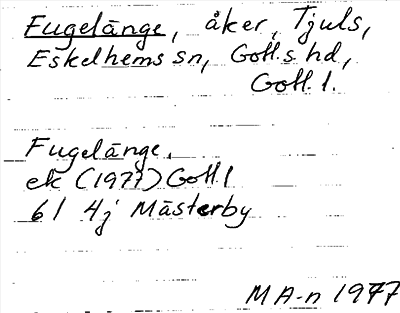 Fugelänge, åker, Tjuls,
Eskelhems sn, Gotl. s hd,
Gotl. l.
Fugelänge.
ek (1977) Gotl
6 I 4j Mästerby
M A-n 1977